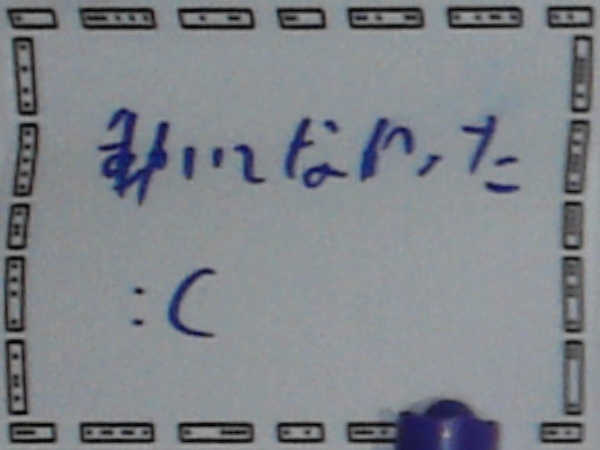 動いてなかった
:(